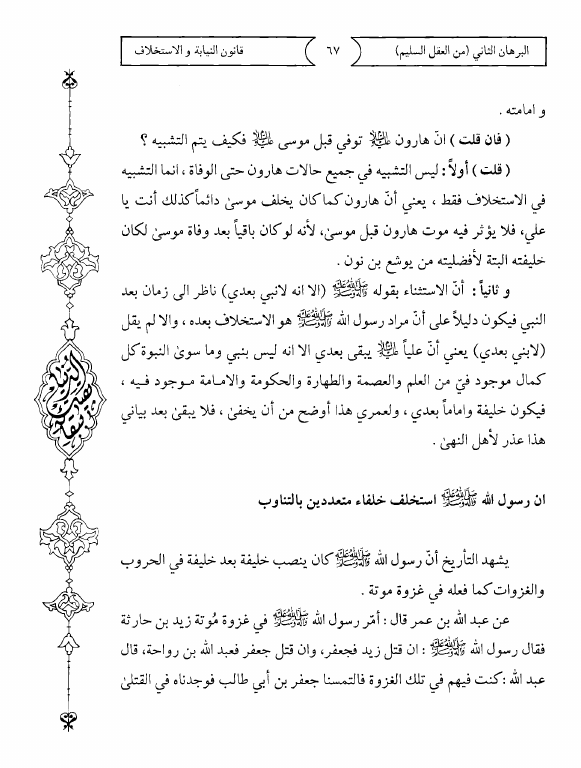 البرهان الثاني (من العقل السليم) ٦٧ قانون النيابة و الاستخلاف
و امامته .
( فان قلت ) انّ هارون ﵇ توفي قبل موسى ﵇ فكيف يتم التشبيه ؟
( قلت ) أولاً : ليس التشبيه في جميع حالات هارون حتى الوفاة ، انما التشبيه
في الاستخلاف فقط ، يعني أنّ هارون كما كان يخلف موسىٰ دائماً كذلك أنت يا
علي، فلا يؤثر فيه موت هارون قبل موسىٰ، لأنه لو كان باقياً بعد وفاة موسىٰ لكان
خليفته البتة لأفضليته من يوشع بن نون .
و ثانياً : أنّ الاستثناء بقوله ﷺ (الا انه لانبي بعدي) ناظر الى زمان بعد
النبي فيكون دليلاً على أنّ مراد رسول الله ﷺ هو الاستخلاف بعده ، والا لم يقل
(لابني بعدي) يعني أنّ علياً ﵇ يبقى بعدي الا انه ليس بنبي وما سوىٰ النبوة كل
كمال موجود فيّ من العلم والعصمة والطهارة والحكومة والامامة موجود فيه ،
فيكون خليفة واماماً بعدي ، ولعمري هذا أوضح من أن يخفىٰ ، فلا يبقىٰ بعد بياني
هذا عذر لأهل النهىٰ .
ان رسول الله ﷺ استخلف خلفاء متعددين بالتناوب
يشهد التأريخ أنّ رسول الله ﷺ كان ينصب خليفة بعد خليفة في الحروب
والغزوات كما فعله في غزوة موتة .
عن عبد الله بن عمر قال : أمّر رسول الله ﷺ في غزوة مُوتة زيد بن حارثة
فقال رسول الله ﷺ : ان قتل زيد فجعفر، وان قتل جعفر فعبد الله بن رواحة، قال
عبد الله : كنت فيهم في تلك الغزوة فالتمسنا جعفر بن أبي طالب فوجدناه في القتلىٰ